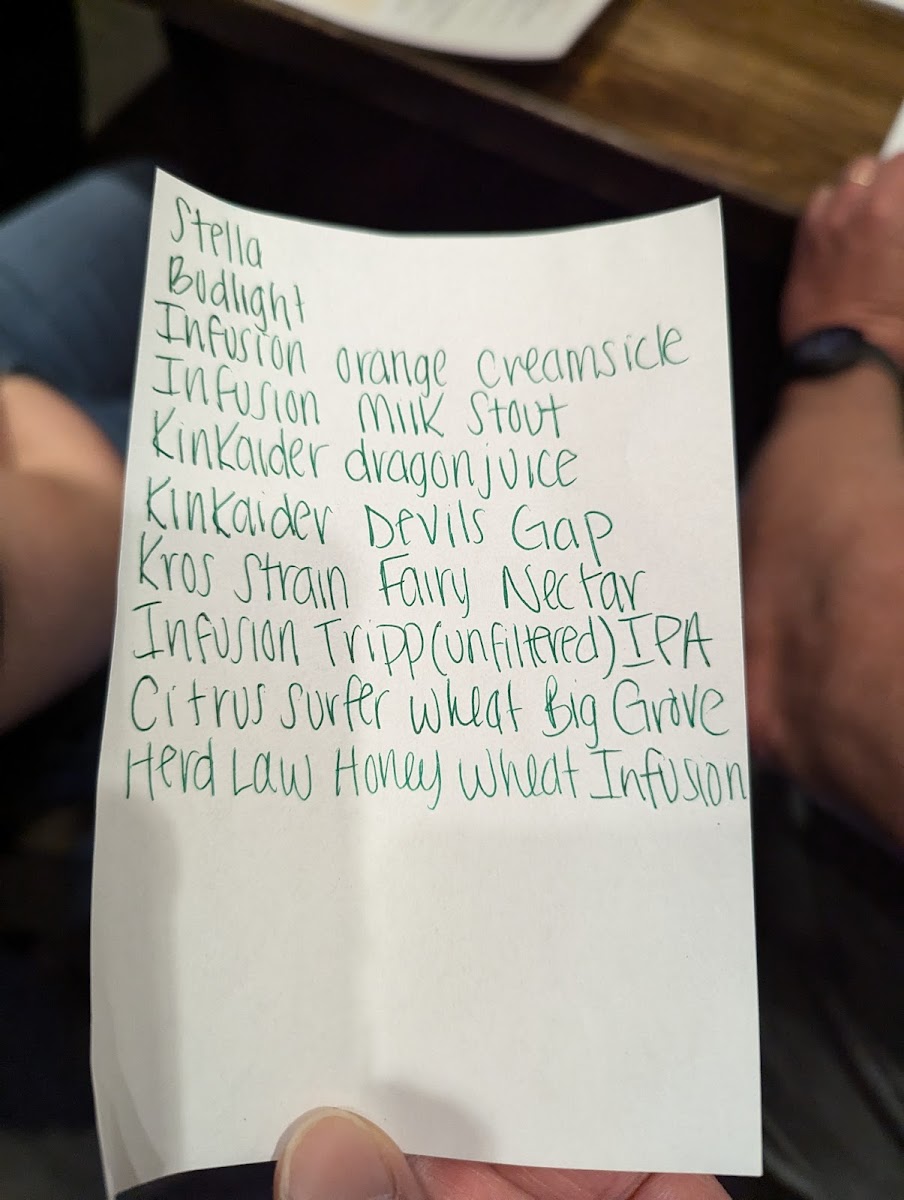 Stella
Budlight
Infusion orange creamsicle
Infusion Milk Stout
Kinkaider dragonjuice
Kinkaider Devils Gap
Kros Strain Fairy Nectar
Infusion Tripp (unfiltered) IPA
Citrus surfer wheat Big Grove
Herd Law Honey wheat Infusion